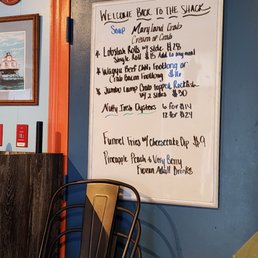 WELCOME BACK TO THE SHACK
Soup Maryland Crab
Cream of Crab
* Lobstah Rolls w/ side $28
Single Roll $18 Add to any meal
* Wagyu Beef Chili Footlong or
Crab Bacon Footlong $16
* Jumbo Lump Crab topped Rockfish
w/ 2 sides $30
Nutty Irish Oysters 6 for $14
12 for $24
Funnel Fries w/ Cheesecake Dip $9
Pineapple Peach & Very Berry
Frozen Adult Drinks